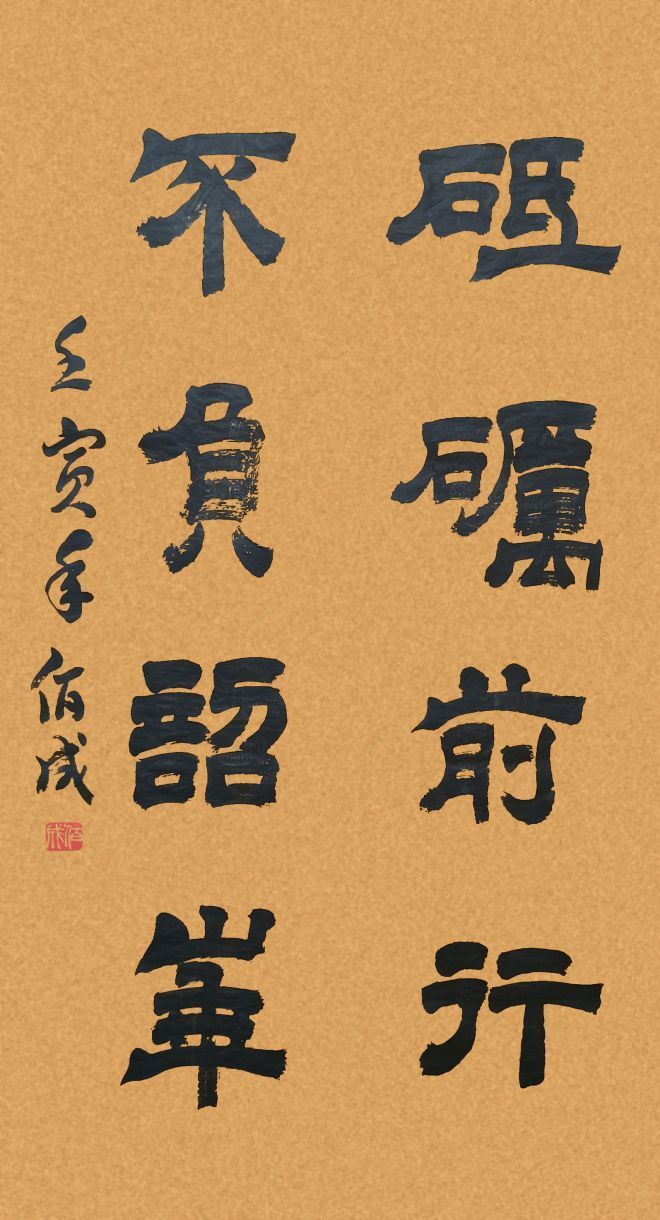 砥礪前行
不負韶華
壬寅年佰成
佰成